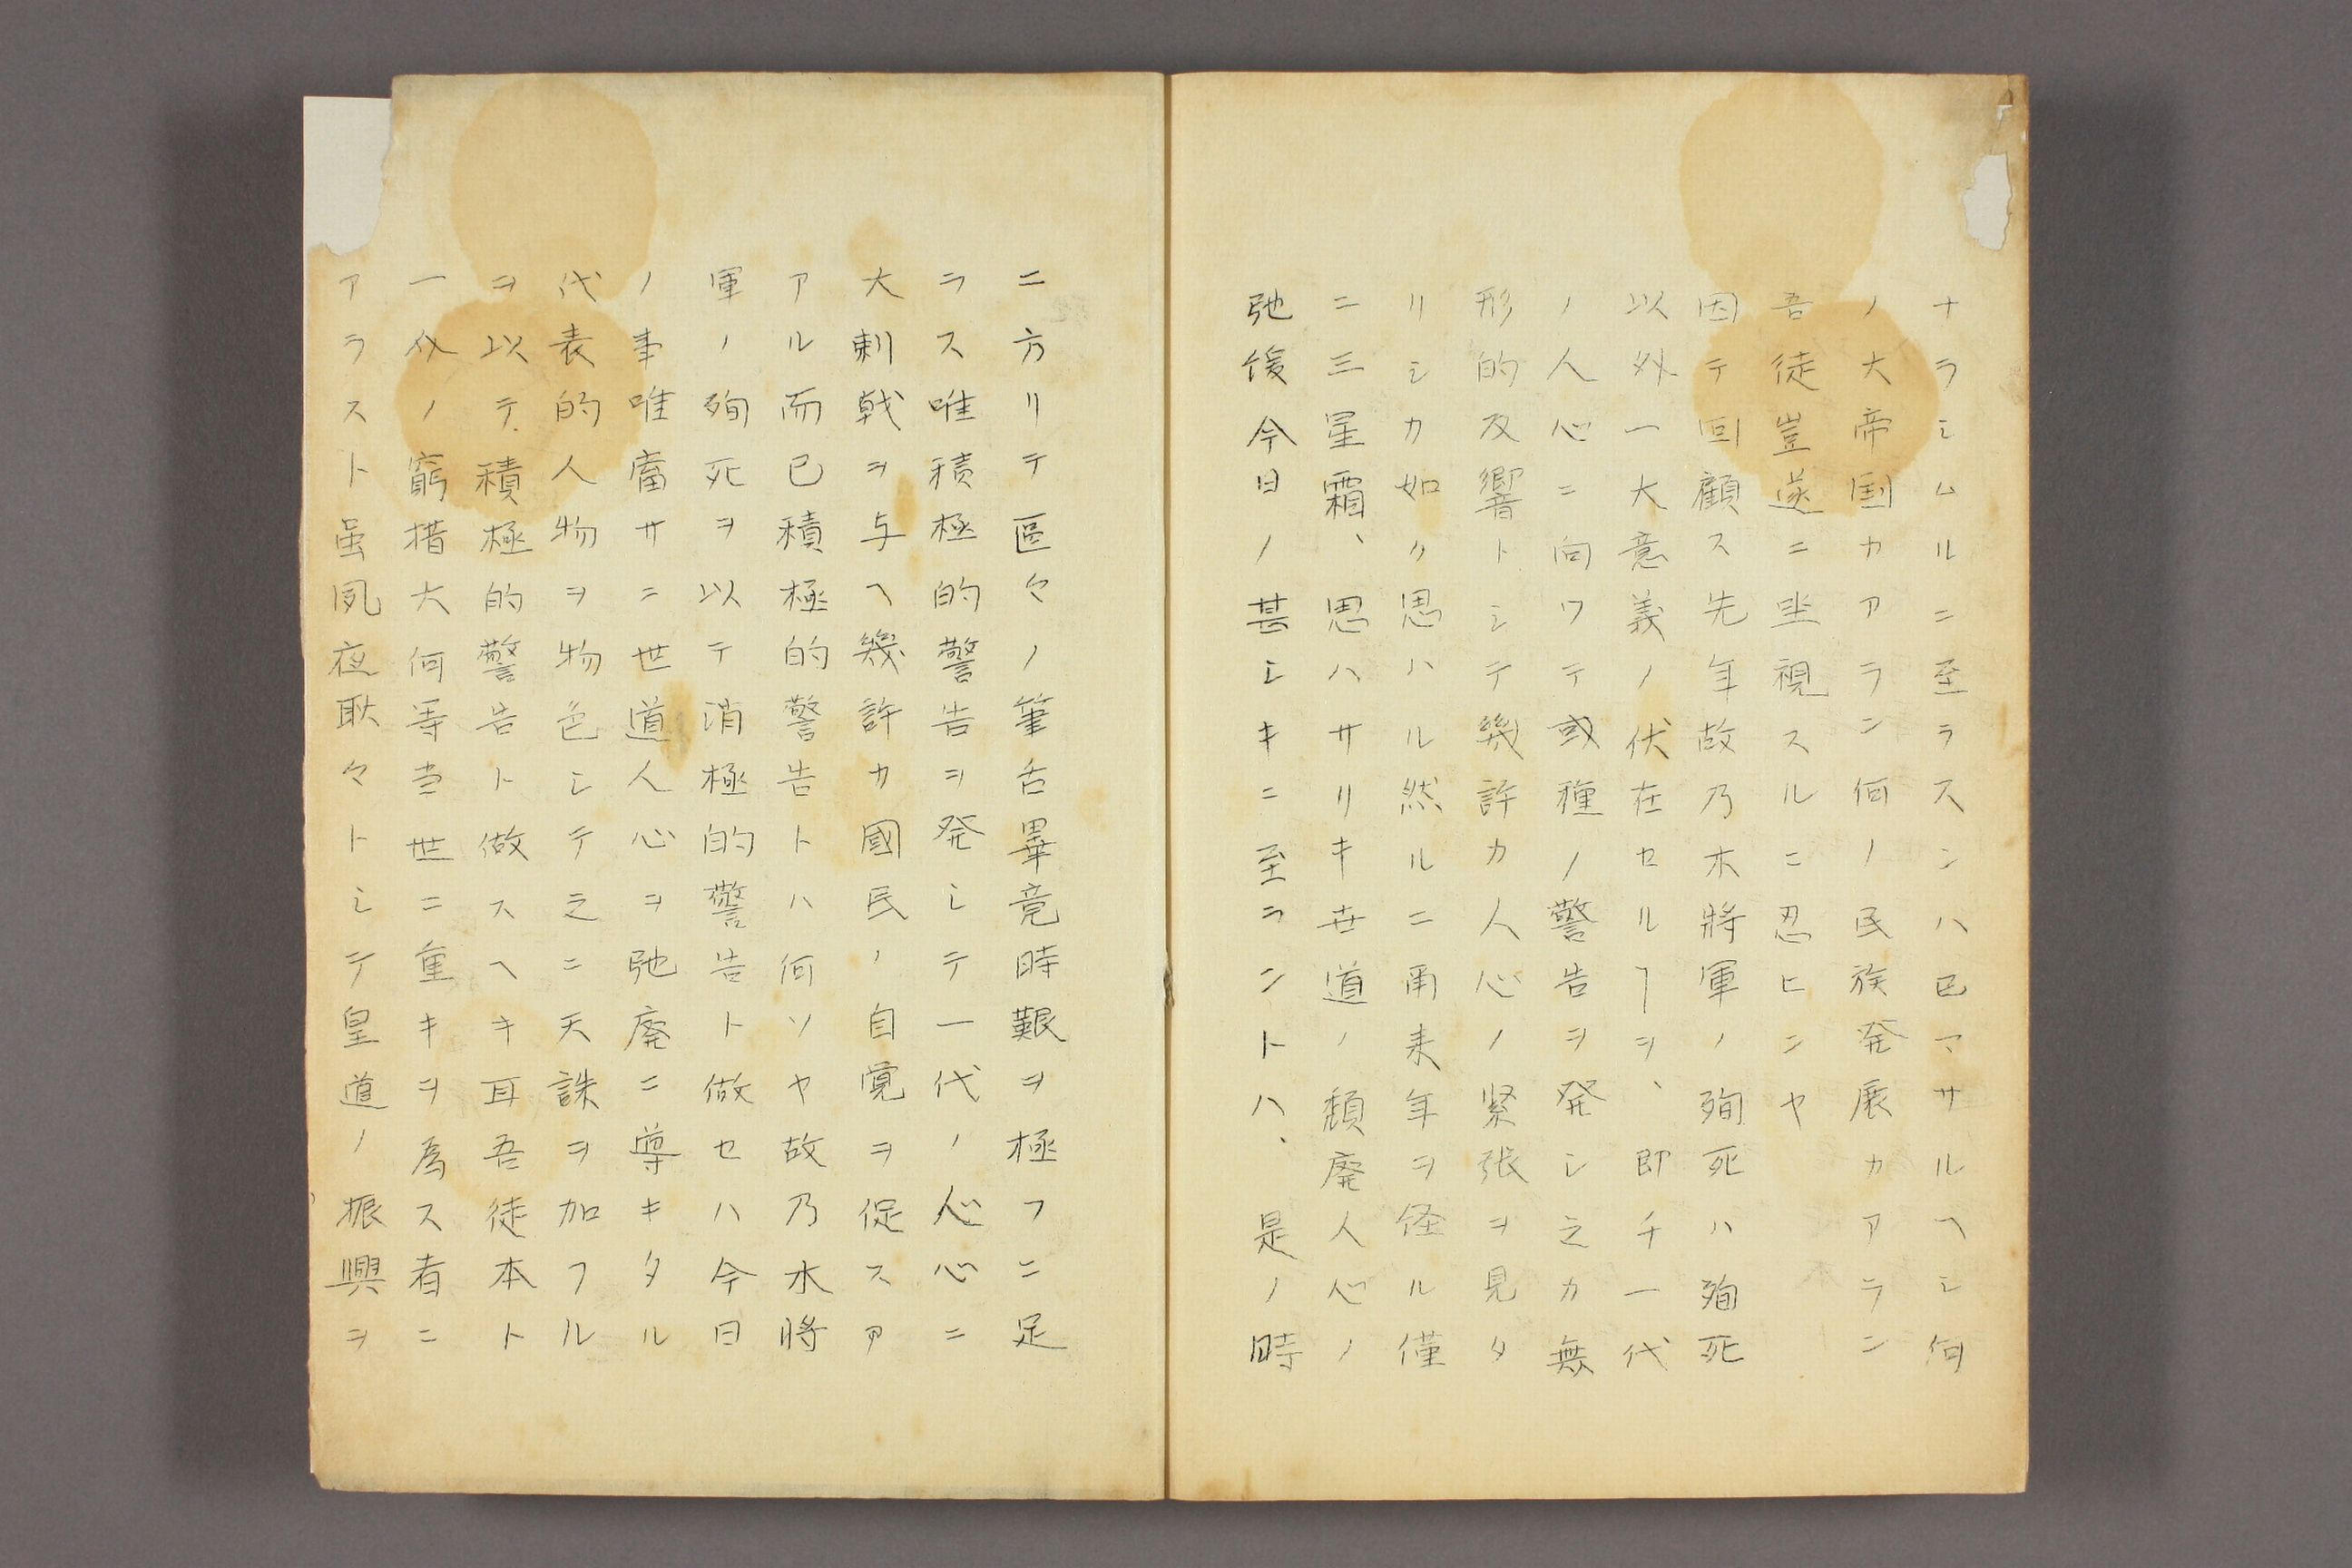 ナラシムルニ至ラスンハ已マサルヘシ何
ノ大帝国カアラン何ノ民族発展カアラン
吾徒豈遂ニ坐視スルニ忍ヒンヤ
因テ回顧ス先年故乃木將軍ノ殉死ハ殉死
以外一大意義ノ伏在セルヿヲ、即チ一代
ノ人心ニ向ワテ或種ノ警告ヲ発シ之カ無
形的反響トシテ幾許カ人心ノ緊張ヲ見タ
リシカ如ク思ハル然ルニ甭来年ヲ経ル僅
ニ三星霜、思ハサリキ世道ノ頽廃人心ノ
弛緩今日ノ甚シキニ至ラントハ、是ノ時
ニ方リテ區々ノ筆舌畢竟時艱ヲ極フニ足
ラス唯積極的警告ヲ発シテ一代ノ人心ニ
大刺戟ヲ与ヘ幾許カ國民ノ自覚ヲ促スア
アル而已積極的警告トハ何ソヤ故乃木將
軍ノ殉死ヲ以テ消極的警告ト做セハ今日
ノ事唯當サニ世道人心ヲ弛廃ニ導キタル
代表的人物ヲ物色シテ之ニ天誅ヲ加フル
ヲ以テ積極的警告ト做スヘキ耳吾徒本ト
一个ノ窮措大何等当世ニ重キヲ為ス者ニ
アラスト虽夙夜耿々トシテ皇道ノ振興ヲ